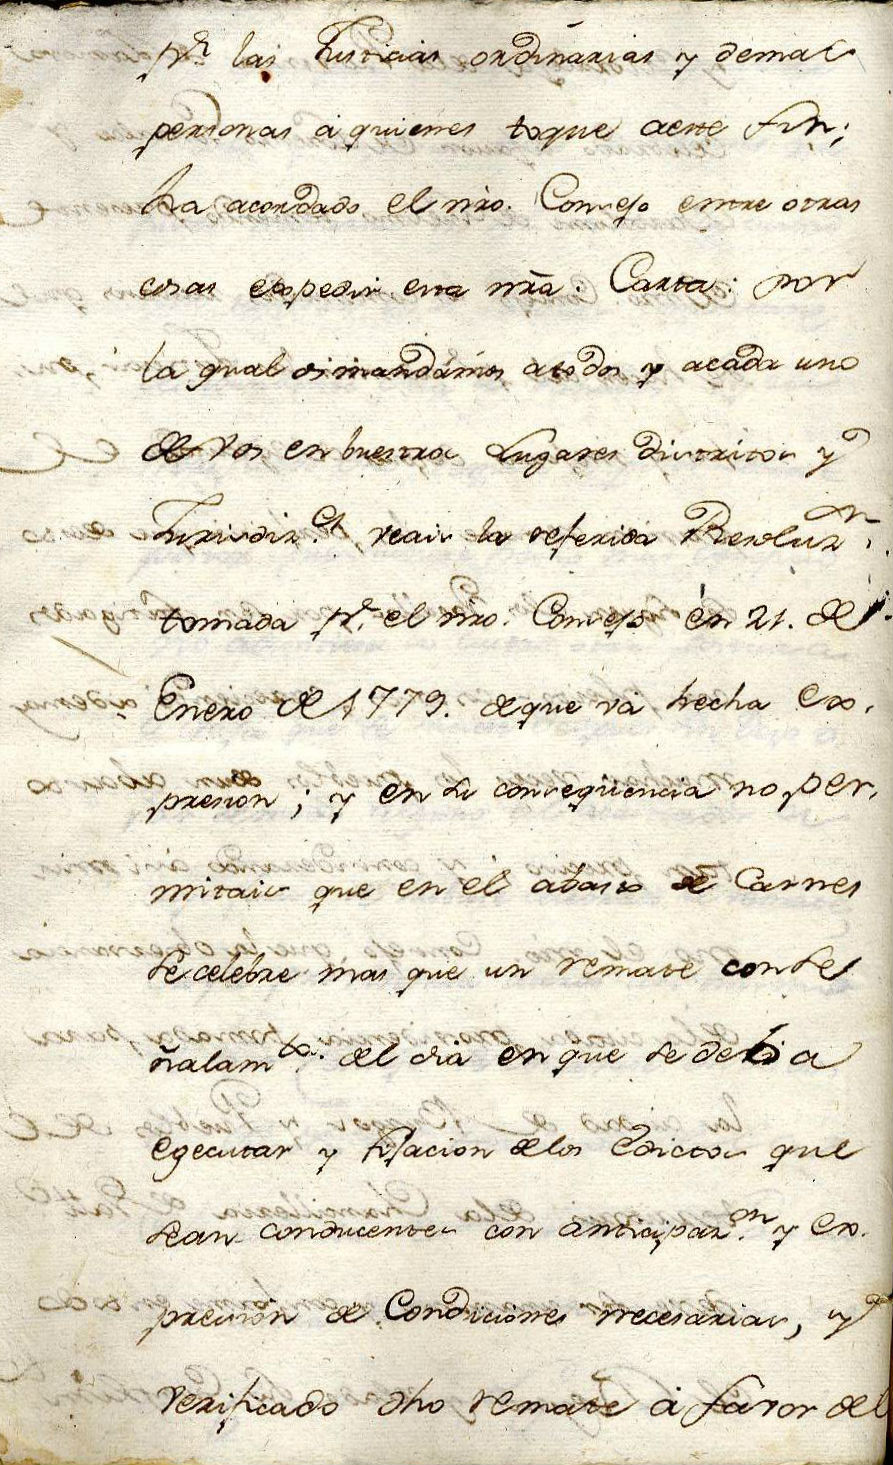 pr. las Justicias ordinarias y demas
personas á quienes toque aeste fin;
ha acordado el nro. Consejo entre otras
cosas expedir esta nrã. Carta: por
la qual os mandámos atodos y acada uno
de vos en buestros Lugares Distritos y
Jurisdizn. veais la referida Resoluzn.
tomada pr. el nro. Consejo én 21. de
Enero de 1779. deque vá hecha ex,
presion; y en su conseqüencia no per,
mitais que en él abasto de Carnes
se celébre mas que un remate con se,
ñalamto. del dia en que se debia
egecutar y fijacion delos Edictos que
sean conducentes con anticipazon. y ex.
presión de Condiciónes necesarias, y
verificado dho remate á favor del